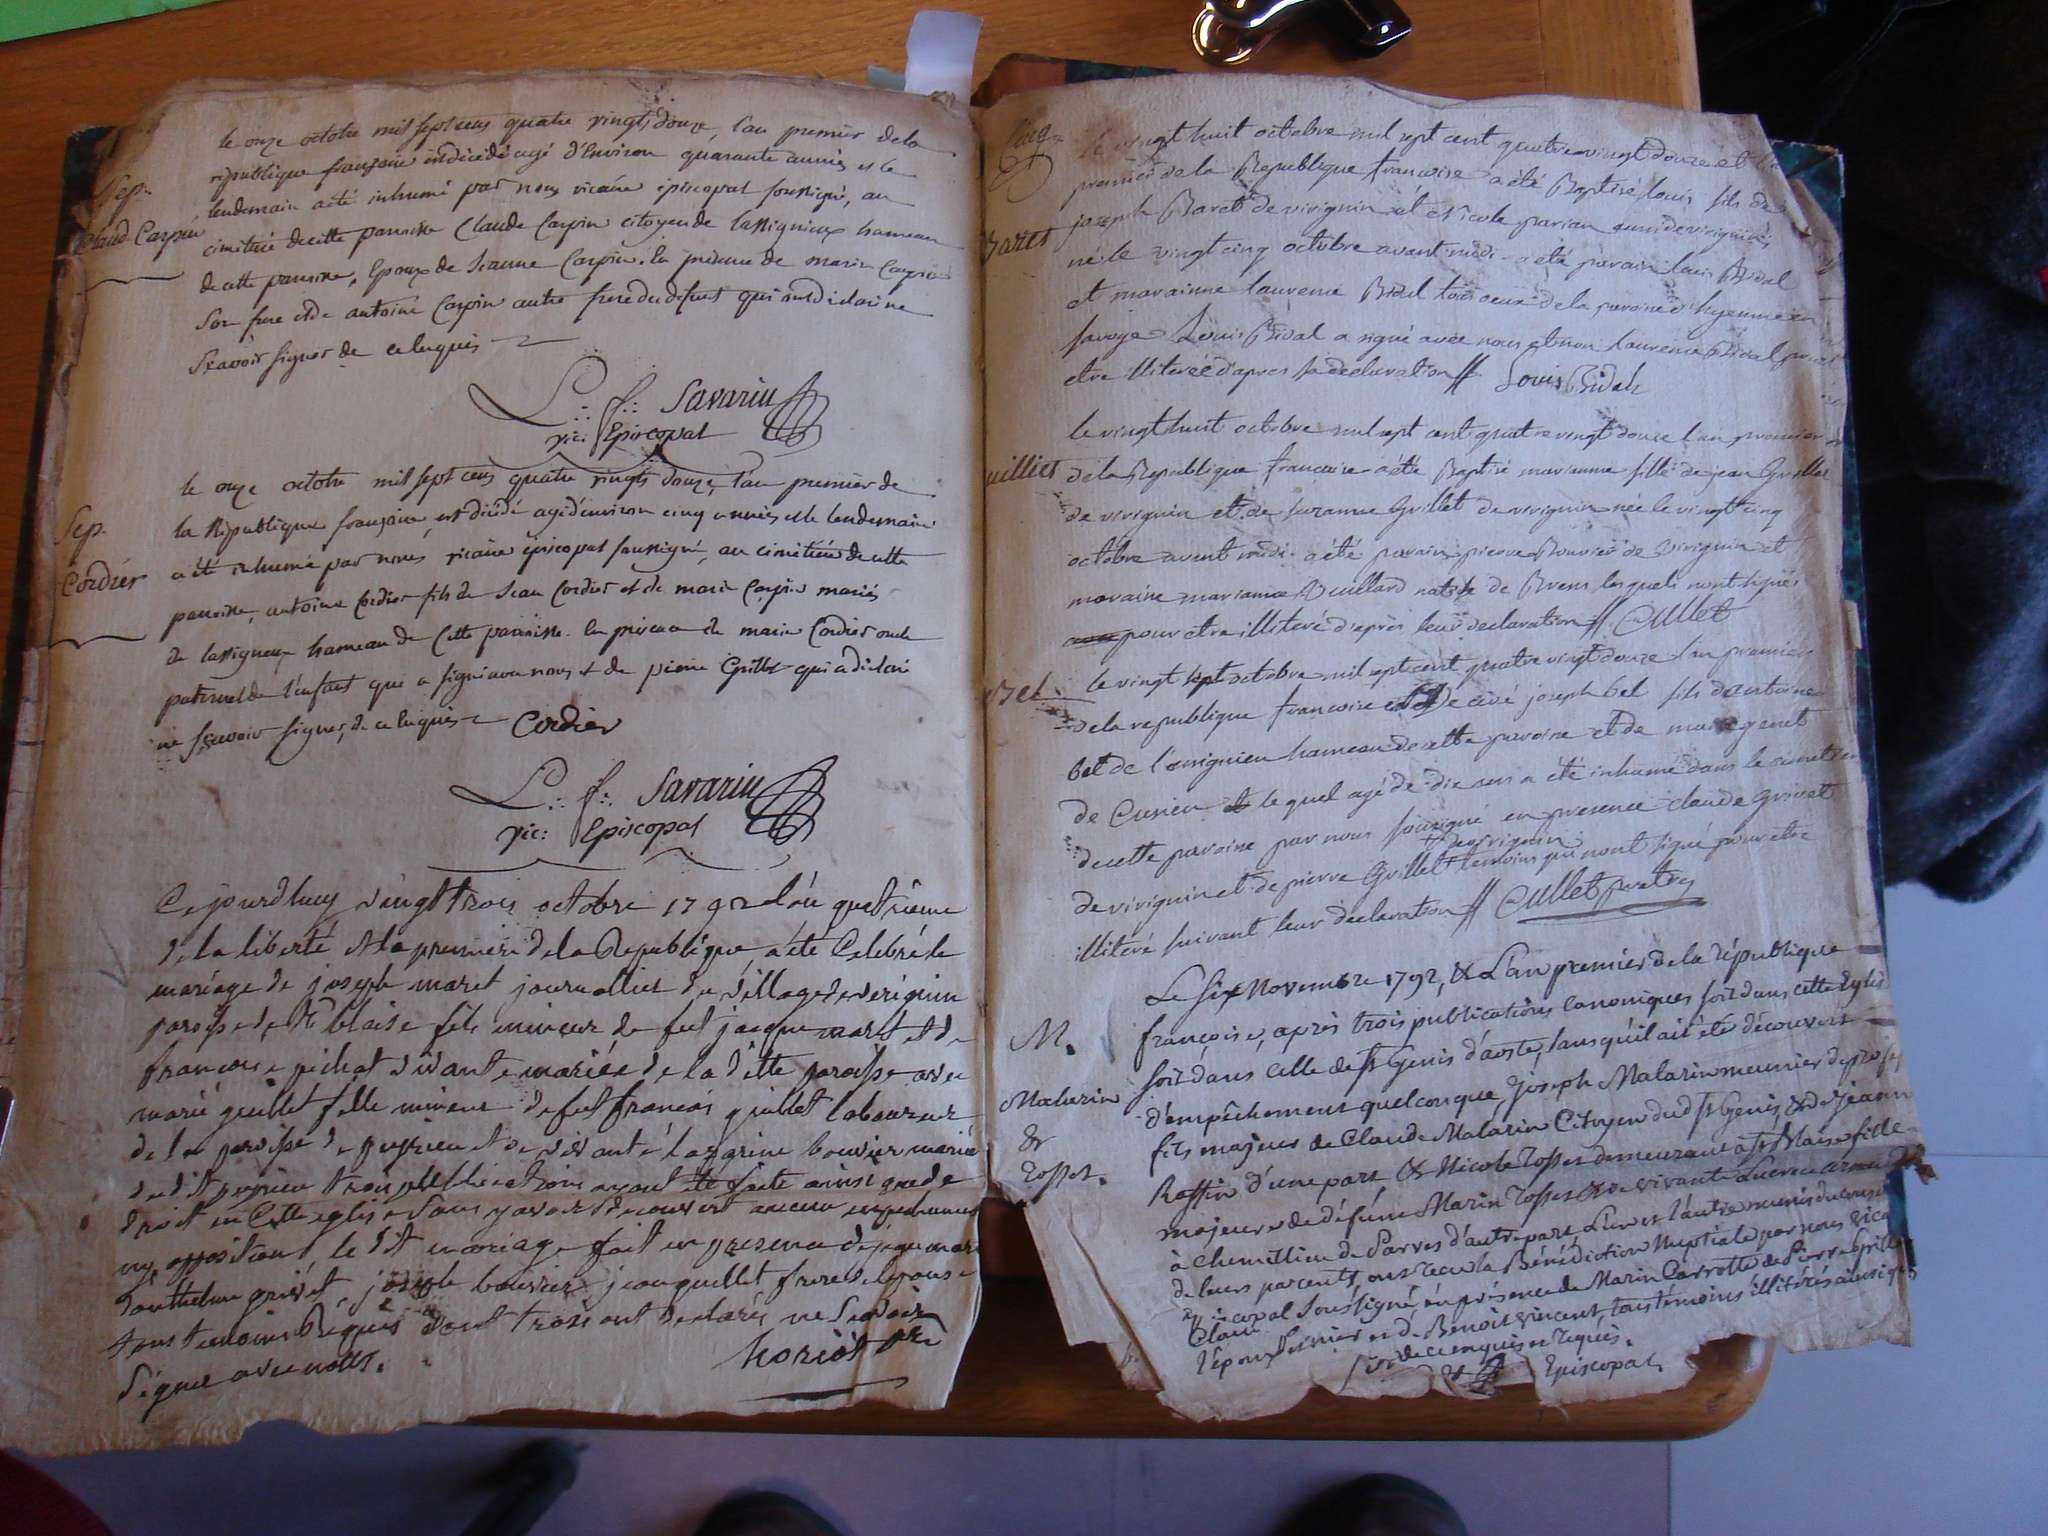 le onze octobre mil sept cens quatre vingts douze, l'an premier de la
république françoise est décédé agé d'environ quarante années et le
Sep.
lendemain a été inhumé par nous vicaire épiscopal soussigné, au
Claud Carpin
cimitiére de cette paroisse Claude Carpin citoyen de lassignieux hameau
de cette paroisse, Epoux de Jeanne Carpin. En présence de marin Carpin
son frere et de antoine Carpin autre frere du défunt qui ont déclaré ne
sçavoir signer de ce enquis
L. f. Savarin
vic: Episcopal
le onze octobre mil sept cens quatre vingts douze, l'an premier de
Sep.
la République françoise, est décédé agé d'environ cinq années et le lendemain
Cordier
a été inhumé par nous vicaire épiscopal soussigné, au cimitiére de cette
paroisse, antoine Cordier fils de Jean Cordier et de marie Carpin mariés
de lassignieux hameau de cette paroisse. En présence de marin Cordier oncle
paternel de l'enfant qui a signé avec nous et de pierre Grillet qui a déclaré
ne sçavoir signer, de ce enquis Cordier
L. f. Savarin
vic: Episcopal
Cejourdhuy vingt trois octobre 1792 l'an quatrieme
de la liberté et le premier de la Republique, a été Celebré le
mariage de joseph maret journallier du village de virignin
paroisse de St blaise fils mineur de feu jacque maret et de
francoise pichat vivante mariée de la ditte paroisse avec
marie guillet fille mineure de feu francois guillet laboureur
de la paroisse de peyrieu et de vivante lazarine bouvier mariée
du dit peyrieu trois publications ayant été faite ainsi que de
droit en cette eglise sans y avoir decouvert aucun empechement
ny opposition, le dit mariage fait en presence de jaque maret
anthelme grivet, joseph bouvier, jean guillet frere de l'epouse
tous temoins Réquis dont trois ont declarés ne Savoir
Signer avec nous. horiot ptre
le vingt huit octobre mil sept cent quatre vingt douze et le
premier de la Republique francoise a été Baptisé louis fils de
joseph Baret de virignin et de nicole parian aussi de virignin
Baret
né le vingt cinq octobre avant midi a été parain louis Bidal
et marainne laurence Bidal tous deux de la paroisse d'hyenne en
savoye Louis Bidal a signé avec nous et non laurence Bidal pour
etre illiterée d'apres sa declaration // Louis Bidal
le vingt huit octobre mil sept cent quatre vingt douze l'an premier
uilliet
de la Republique francoise a été Baptisé marianne fille de jean Grillet
de virignin et de suzanne Grillet de virignin née le vingt cinq
octobre avant midi. a été parain pierre Bouvier de virignin et
maraine marianne Vuillard native de Brens lesquels n'ont signés
pour etre illiteré d'après leur declaration // Cullet
le vingt sept octobre mil sept cent quatre vingt douze l'an premier
Bel
de la republique francoise est décédé joseph bel fils d'antoine
bel de lassignieu hameau de cette paroisse et de marie genet
de Cusieu le quel agé de dix ans a été inhumé dans le cimetiere
de cette paroisse par nous soussigné en presence claude Grivet
de virignin et de pierre Grillet de virignin temoins qui n'ont signé pour etre
illiteré suivant leur declaration // Cullet pretre
Le six Novembre 1792, & L'an premier de la république
françoise, après trois publications canoniques soit dans cette Eglise
M.
soit dans celle de St Genis d'aoste, sans qu'il ait été découvert
d'empêchement quelconque, Joseph Malarin meunier de profession
Malarin
fils majeur de Claude Malarin Citoyen dud St Genis, & de Jeanne
&
Raffin d'une part & Nicole Rosset demeurant à St Blaise fille
Rosset.
majeure de défunt Marin Rosset & de vivante
à Chemillieu de Parves d'autre part, L'un et l'autre munis du consentement
de leurs parents, ont reçu la Bénédiction Nuptiale par nous vicaire
Episcopal Soussigné en présence de Marin Carrotte de Pierre Grillet
Claude Fornier et de Benoit Vincent tous témoins illitérés ainsi que
l'épouse de ce enquis et requis.
Episcopal